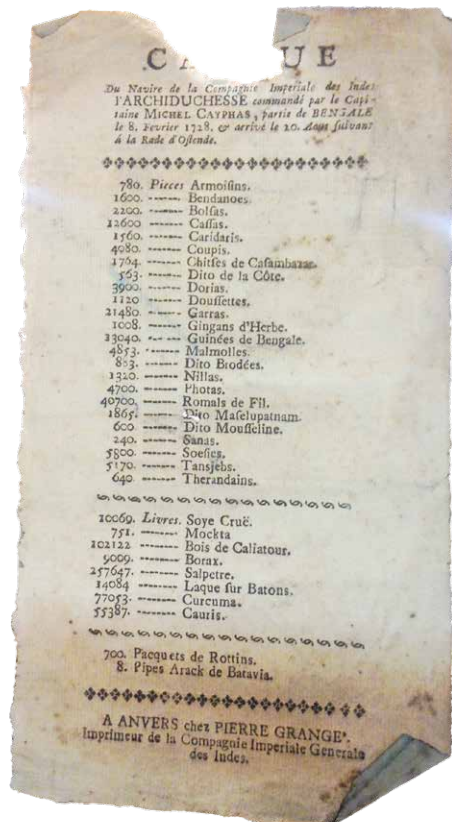 C UE
Du Navire de la Compagnie Imperiale des Indes
l'ARCHIDUCHESSE commandé par le Capi-
taine MICHEL CAYPHAS, partie de BENGALE
le 8. Fevrier 1728. & arrivé le 20. Aous suivant
á la Rade d'Ostende.
780. Pieces Armoisins.
1600. ------- Bendanoes.
2200. ------- Bolsas.
12600 ------- Cassas.
1560. ------- Caridaris.
4080. ------- Coupis.
1764. ------- Chitses de Casambazar.
563. ------- Dito de la Côte.
3900. ------- Dorias.
1120 ------- Doussettes.
21480. ------- Garras.
1008. ------- Gingans d'Herbe.
13040. ------- Guinées de Bengale.
4853. ------- Malmolles.
883. ------- Dito Brodées.
1320. ------- Nillas.
4700. ------- Photas.
40700. ------- Romals de Fil.
1865. ------- Dito Maselupatnam.
600 ------- Dito Mousseline.
240. ------- Sanas.
5800. ------- Soesies.
5170. ------- Tansjebs.
640 ------- Therandains.
10069. Livres. Soye Cruë.
751. ------- Mockta
102122 ------- Bois de Caliatour.
9009. ------- Borax.
257647. ------- Salpetre.
14084 ------- Laque sur Batons.
77053. ------- Curcuma.
55387. ------- Cauris.
700. Pacquets de Rottins.
8. Pipes Arack de Batavia.
A ANVERS chez PIERRE GRANGE'.
Imprimeur de la Compagnie Imperiale Generale
des Indes.